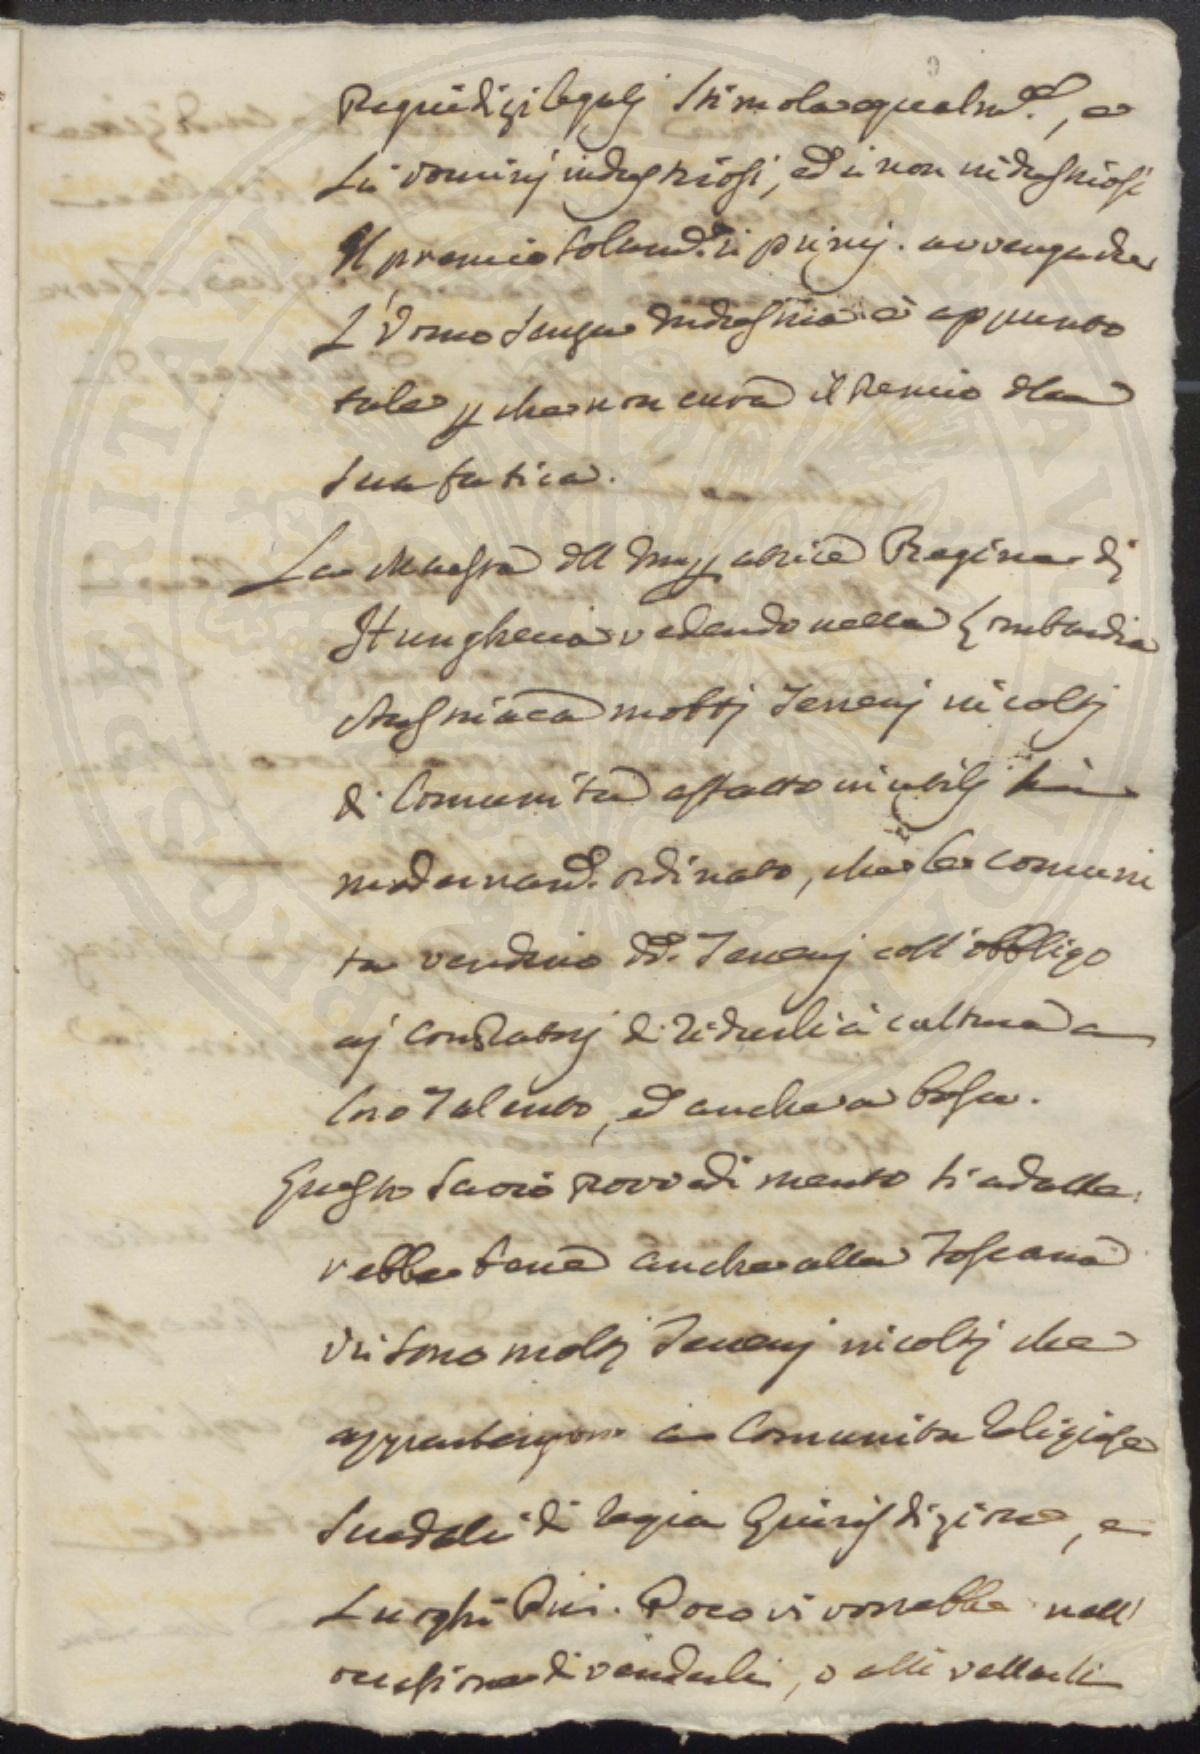 Pregiudizi legali stimola equalm.e, e
Li uomini industriosi, ed i non industriosi
Il premio solam.te i primi. avvengache
L'Uomo senza Industria è appunto
tale p che non cura il Premio della
sua fatica.
La Maestà dell Imperatrice Regina di
Hungheria vedendo nella Lombardia
Austriaca molti Terreni incolti
di Comunità affatto inutili hà
modernam.te ordinato, che le comuni
ta vendino dd. Terreni coll'obbligo
ai Compratori di ridurli à cultura a
loro Talento, ed anche a bosco.
Questo savio Provvedimento si adatte:
rebbe bene anche alla Toscana
Vi sono molti Terreni incolti che
appartengono a Comunita Religiose
Suddeti di Regia Giurisdizione, e
Luoghi Pii. Poco vi vorrebbe nell'
occasione di venderli, o allivellarli